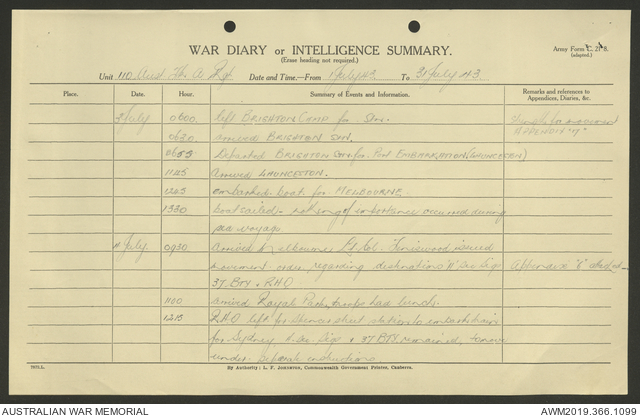 WAR DIARY or INTELLIGENCE SUMMARY.
(Erase heading not required.)
Army Form C. 2118.
(adapted.)
Unit 110 Aust Lt. A. Regt Date and Time.—From 1 July 43 To 31 July 43.
Place. Date. Hour. Summary of Events and Information. Remarks and references to Appendices, Diaries, &c.
3 July 0600 left BRIGHTON CAMP for Stn.
0630 arrived BRIGHTON STN. APPENDIX
0655 Departed BRIGHTON for Port EMBARKATION (LAUNCESTON)
1145 arrived LAUNCESTON.
1245 embarked boat for MELBOURNE.
1330 Boat sailed - nothing of importance occurred during
sea voyage.
4 July 0930 arrived Melbourne Lt Col issued
movement order regarding destinations Sec Sigs Appendix attached
37 BTY & RHQ
1100 arrived Royal Park, troops had lunch.
1215 RHQ left for Spencer street station to embark train
for Sydney. Sec Sigs & 37 BTY remained, to move
under separate instructions.
7873.L. By Authority: L. F. JOHNSTON, Commonwealth Government Printer, Canberra.
AUSTRALIAN WAR MEMORIAL
AWM2019.366.1099